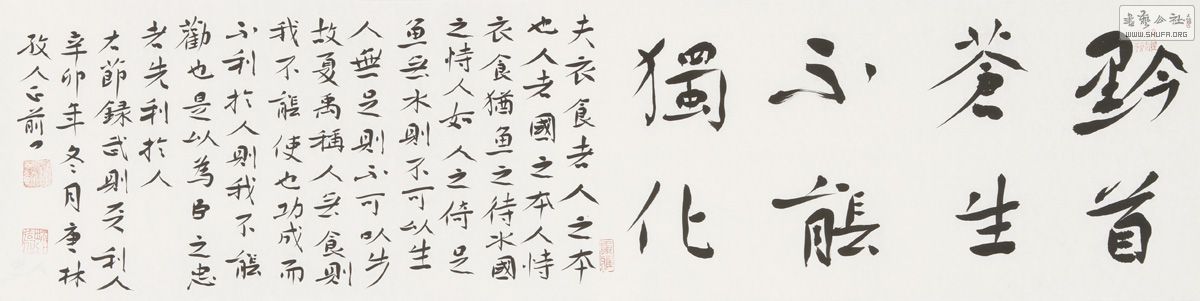 黔首
蒼生
不能
獨化
夫衣食者人之本
也人者國之本人恃
衣食猶魚之待水國
之恃人如人之倚足
魚無水則不可以生
人無足則不可以步
故夏禹稱人無食則
我不能使也功成而
不利於人則我不能
勸也是以為臣之忠
者先利於人
右節錄武則天利人
辛卯年冬月唐林
人正前
書藝公社
WWW.SHUFA.ORG